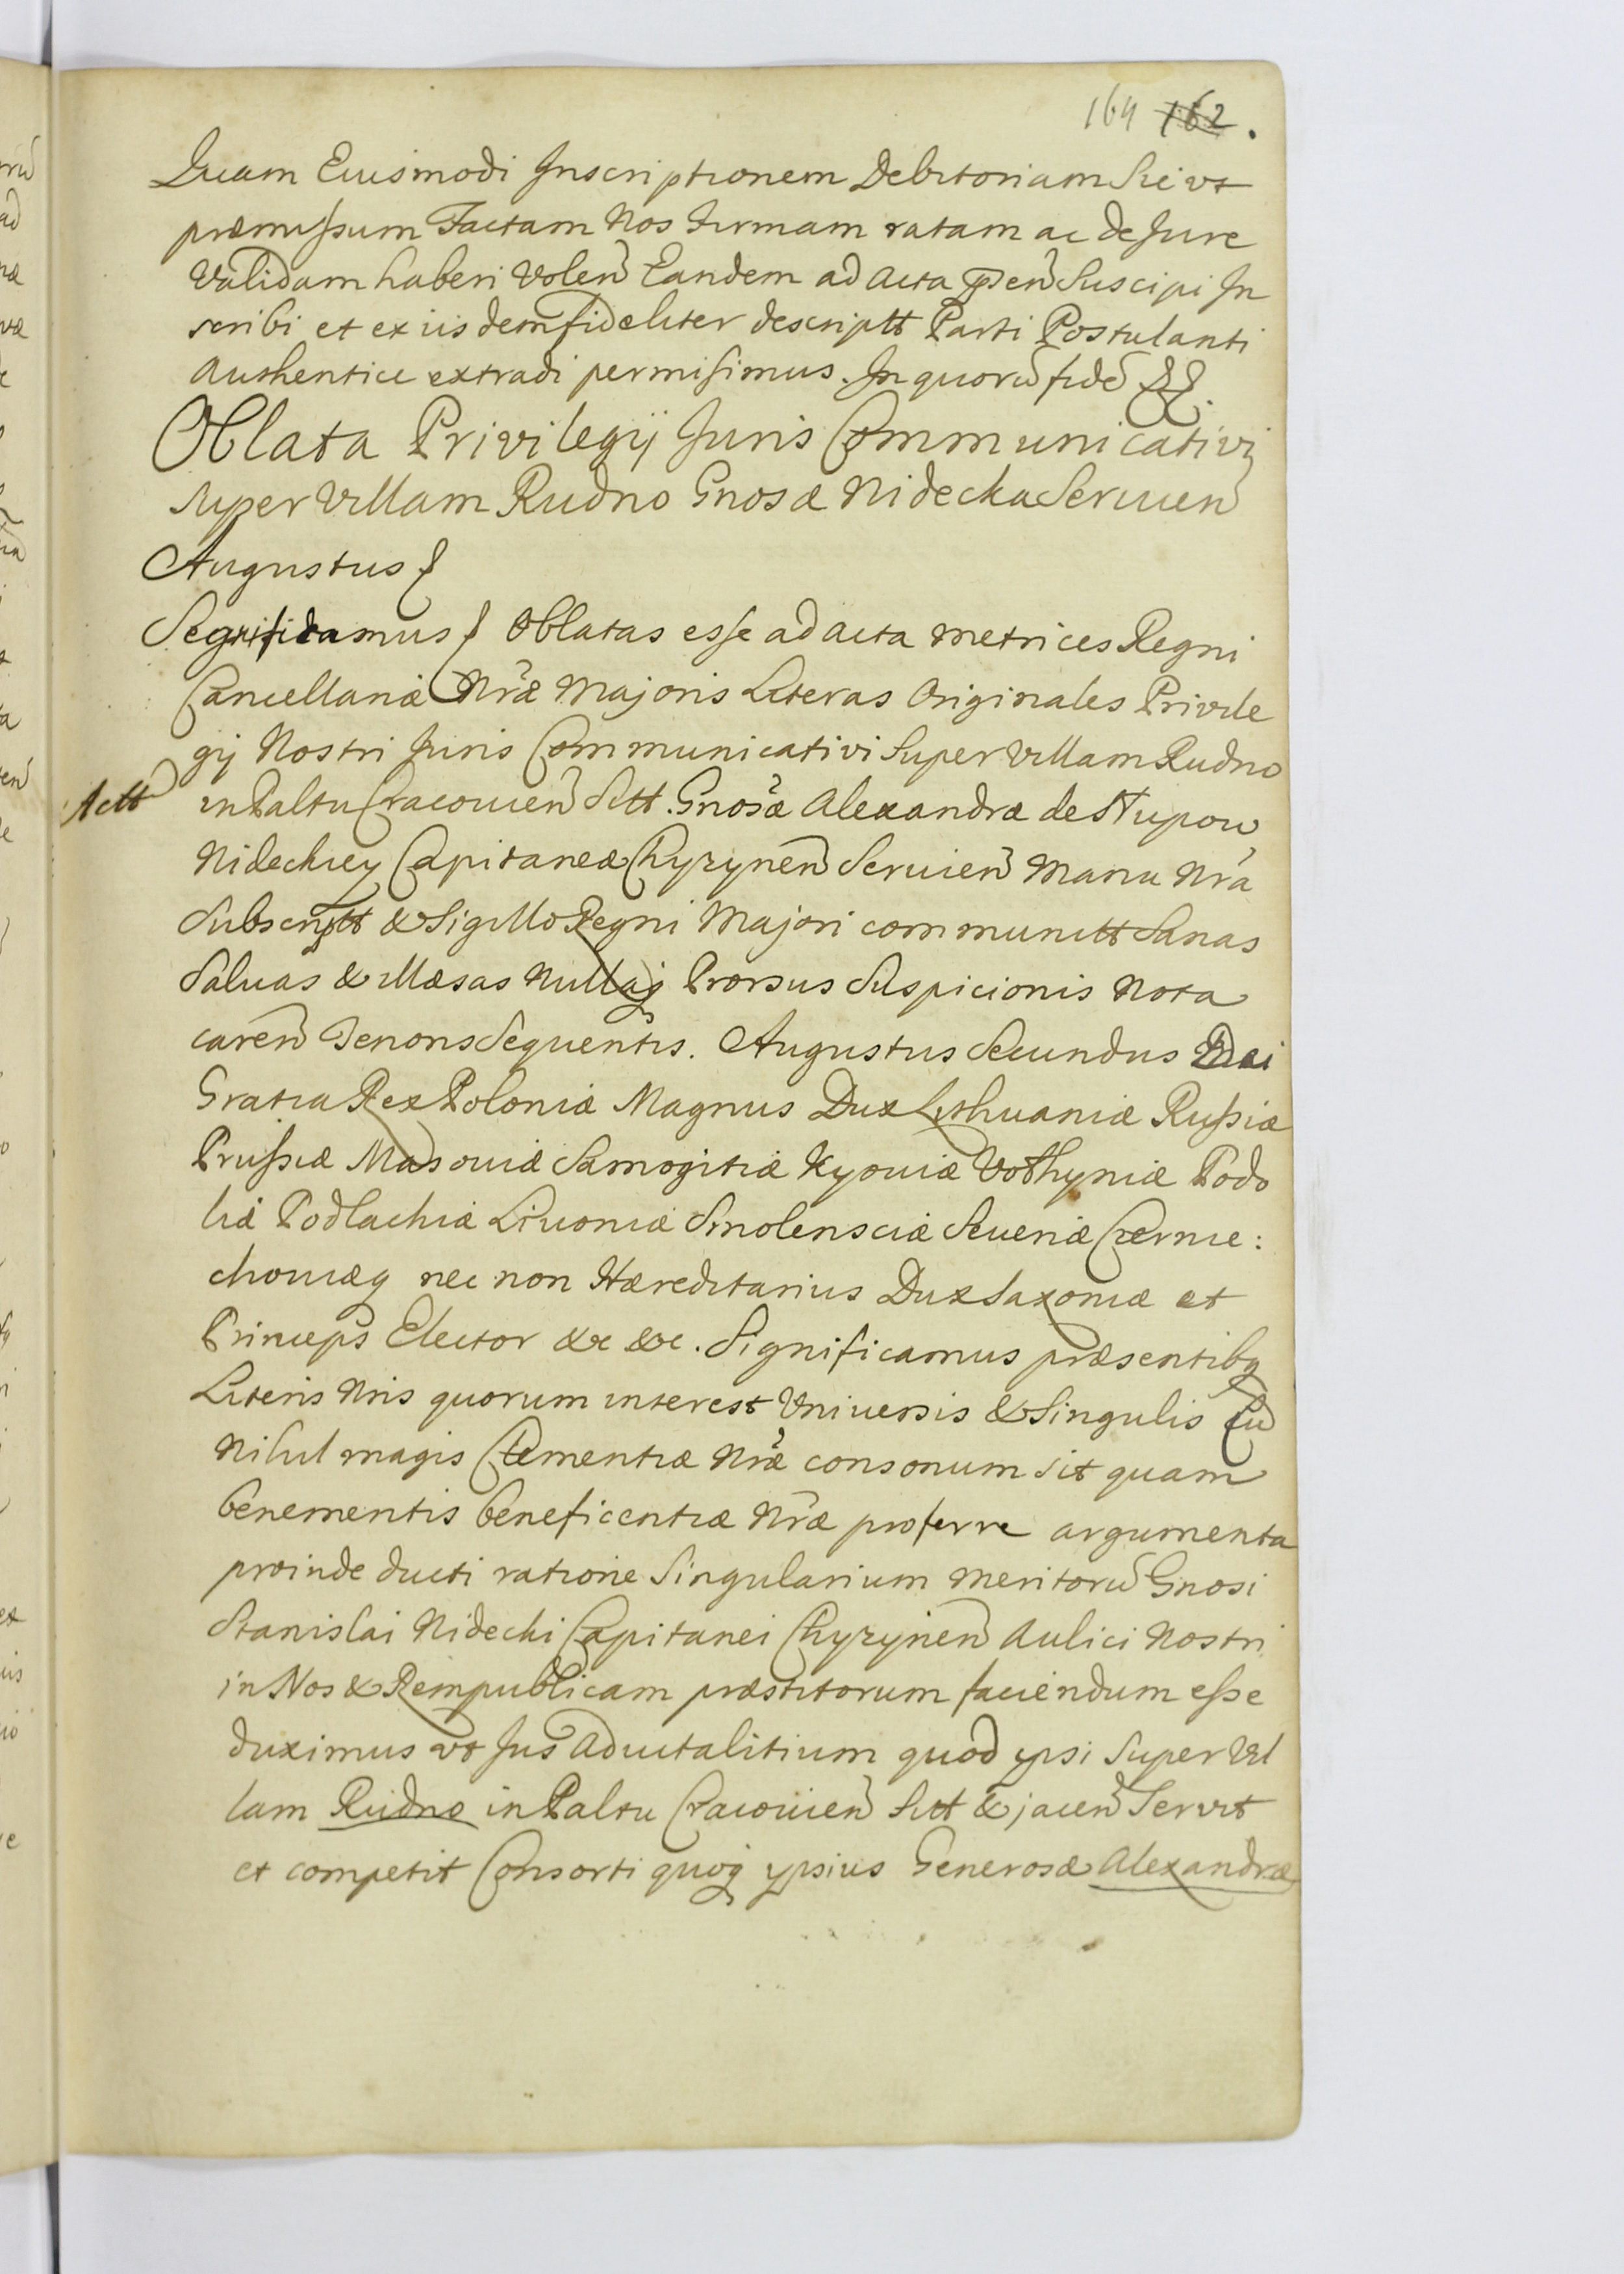 164 162.
Quam Eiusmodi Inscriptionem Debitoriam Sic vt
præmissum Factam Nos Firmam ratam ac de Jure
Validam haberi Volen Eandem ad Acta pñen Suscipi In
scribi et ex iisdem fideliter descriptt Parti Postulanti
Authentice extradi permisimus. In quorū fidē
Oblata Privilegij Juris Communicativi
super Villam Rudno Gnosæ Nidecka Seruien
Augustus
Significamus Oblatas esse ad Acta Metrices Regni
Cancellariæ Nræ Majoris Literas Originales Privile
gij Nostri Juris Communicativi Super Villam Rudno
Actt in Paltu Cracouien Sitt. Gnosæ Alexandræ de Stupow
Nideckiey Capitaneæ Chyzynen Seruien Manu Nra
Subscriptt & Sigillo Regni Majori communitt Sanas
Saluas & Illæsas Nullaq Prorsus Suspicionis Nota
caren Tenoris Sequentis. Augustus Secundus Dei
Gratia Rex Poloniæ Magnus Dux Lithuaniæ Russiæ
Prussiæ Masouiæ Samogitiæ Kyouiæ Volhyniæ Podo
liæ Podlachiæ Liuoniæ Smolensciæ Seueriæ Czernie:
chouiæq nec non Hæreditarius Dux Saxoniæ et
Princeps Elector &c &c. Significamus præsentibq
Literis Nris quorum interest Vniuersis & Singulis Cū
Nihil magis Clementiæ Nræ consonum sit quam
benemeritis beneficentiæ Nræ proferre argumenta
proinde ducti ratione Singularium Meritorū Gnosi
Stanislai Nidecki Capitanei Chyzynen Aulici Nostri
in Nos & Rempublicam præstitorum faciendum esse
duximus vt Jus Aduitalitium quod ipsi Super Vil
lam Rudno in Paltu Cracouien Sitt & jacen Servit
et competit Consorti quoq ipsius Generosæ Alexandræ